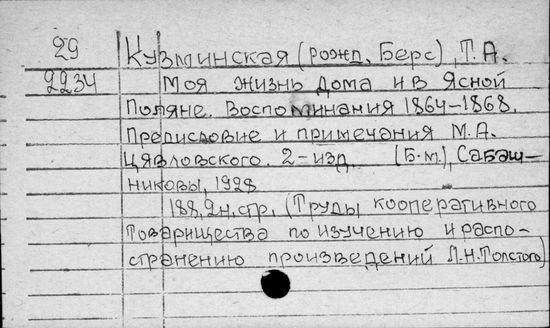 29 Кузминская (рожд. Берс), Т.А.
2234 Моя жизнь дома и в Ясной
Поляне. Воспоминания 1864-1868.
Предисловие и примечания М.А.
Цявловского. 2-изд. (Б.м.), Сабаш-
никовы, 1928
188, 2н.стр. (Труды кооперативного
товарищества по изучению и распо-
странению произведений Л.Н.Толстого)